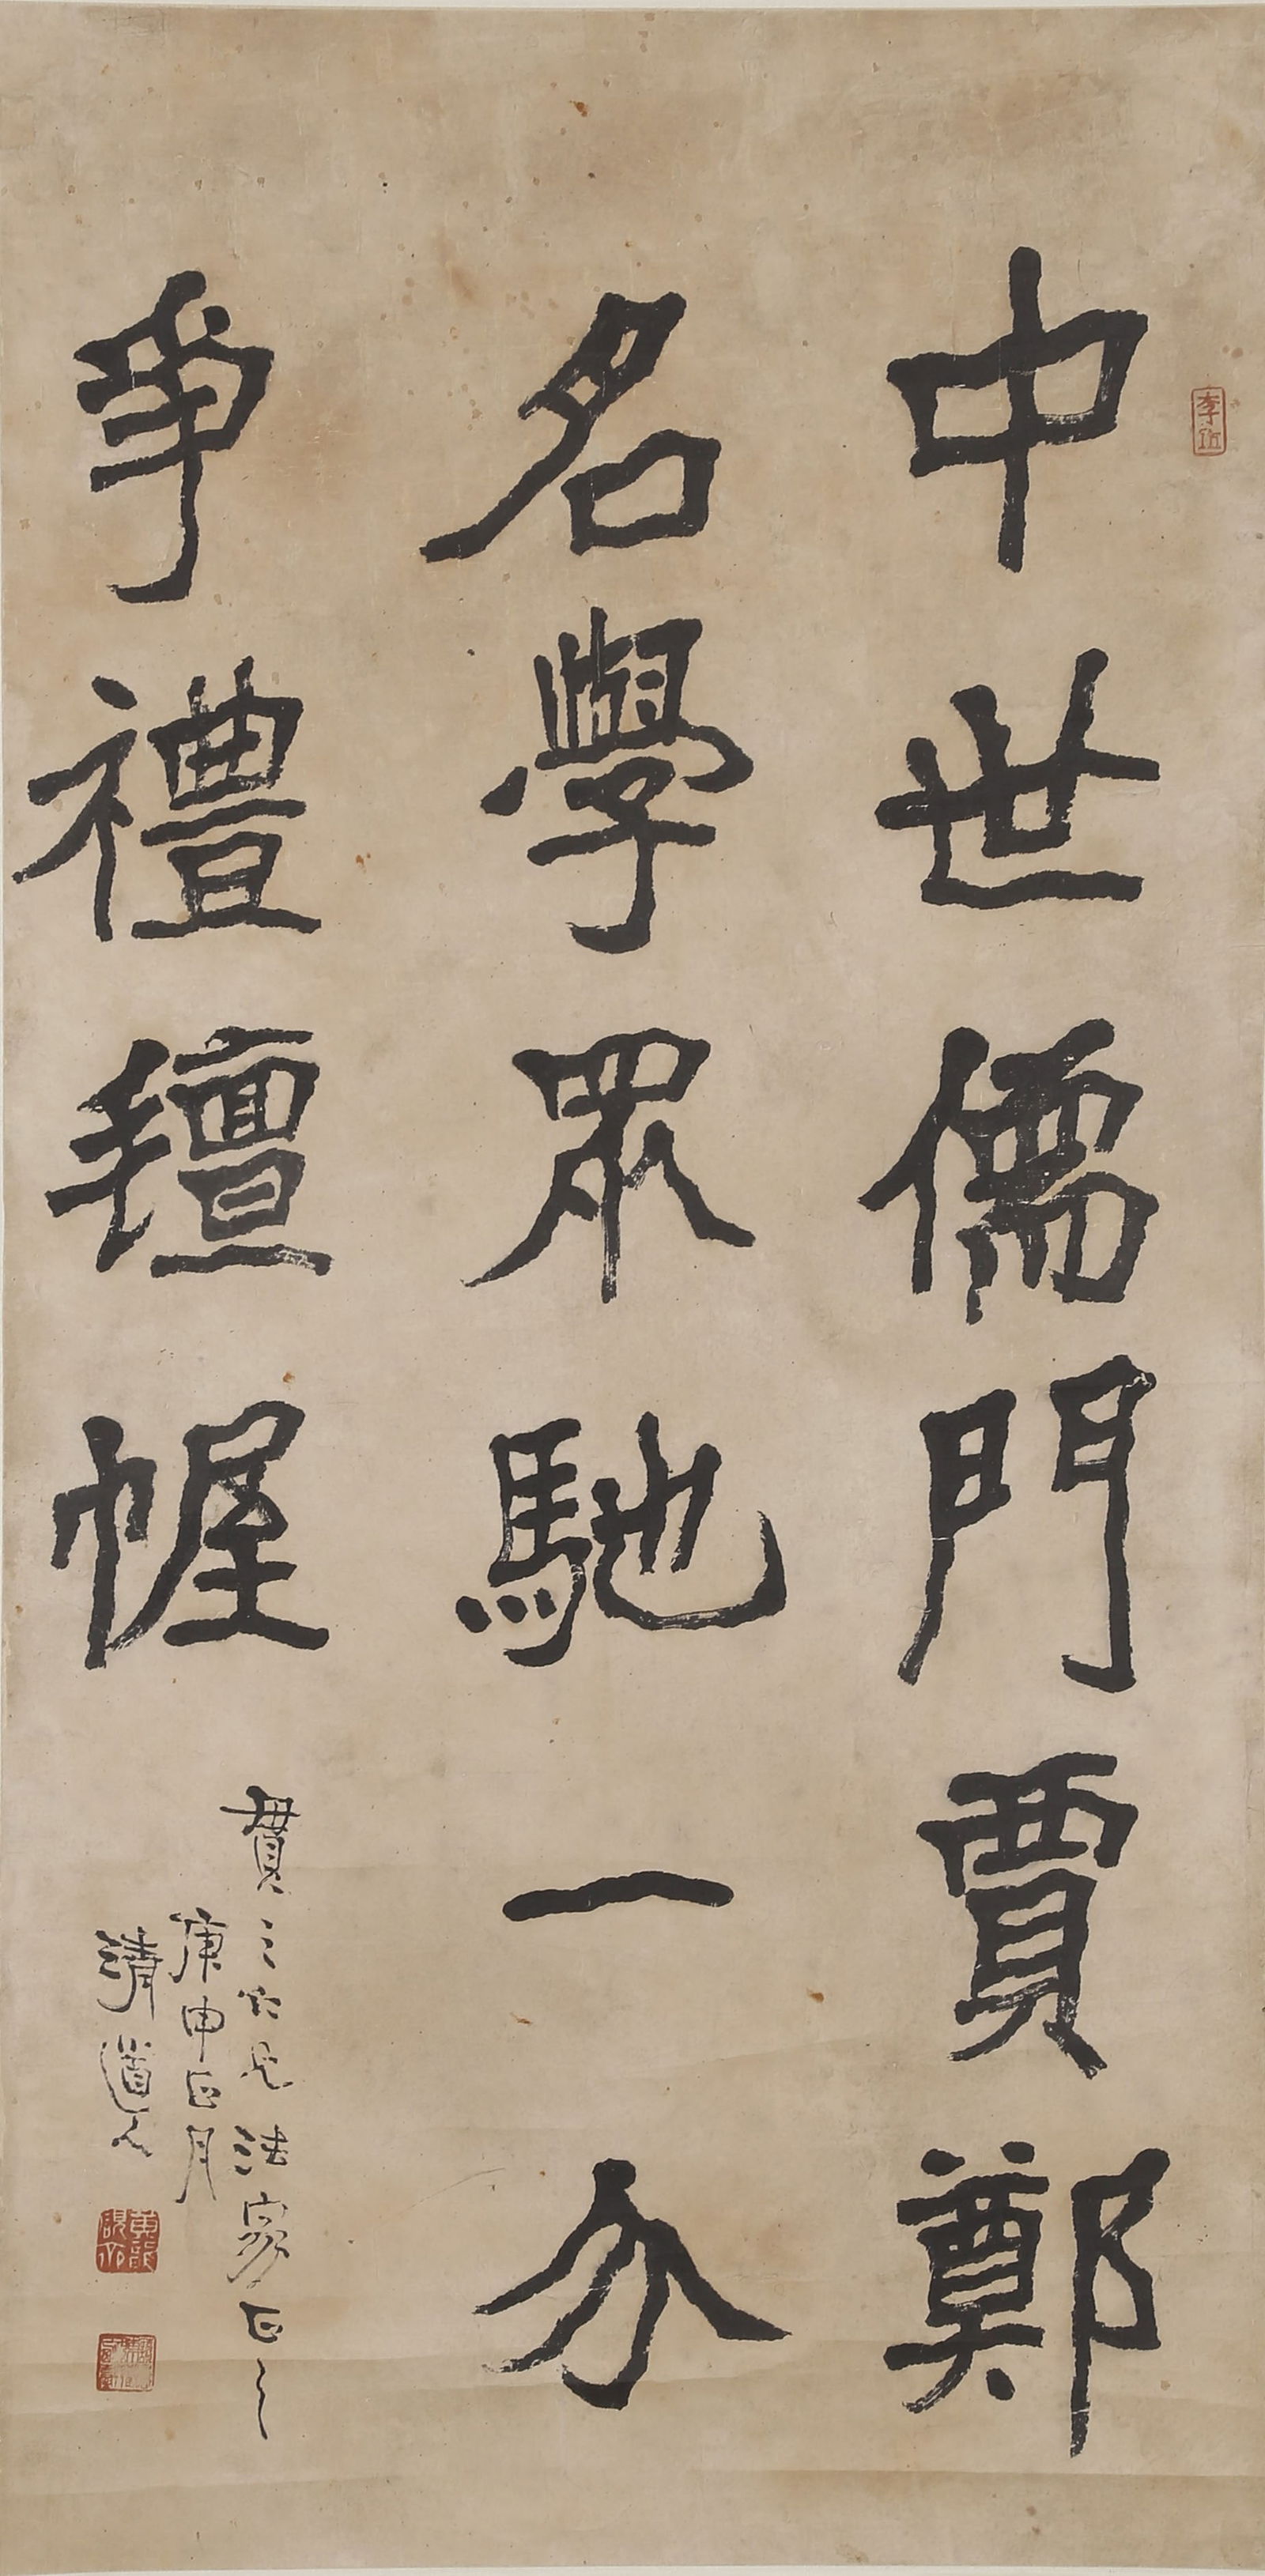 中世儒門賈鄭
名學衆馳一分
爭禮氊幄
貫之仁兄法家正之
庚申正月
清道人